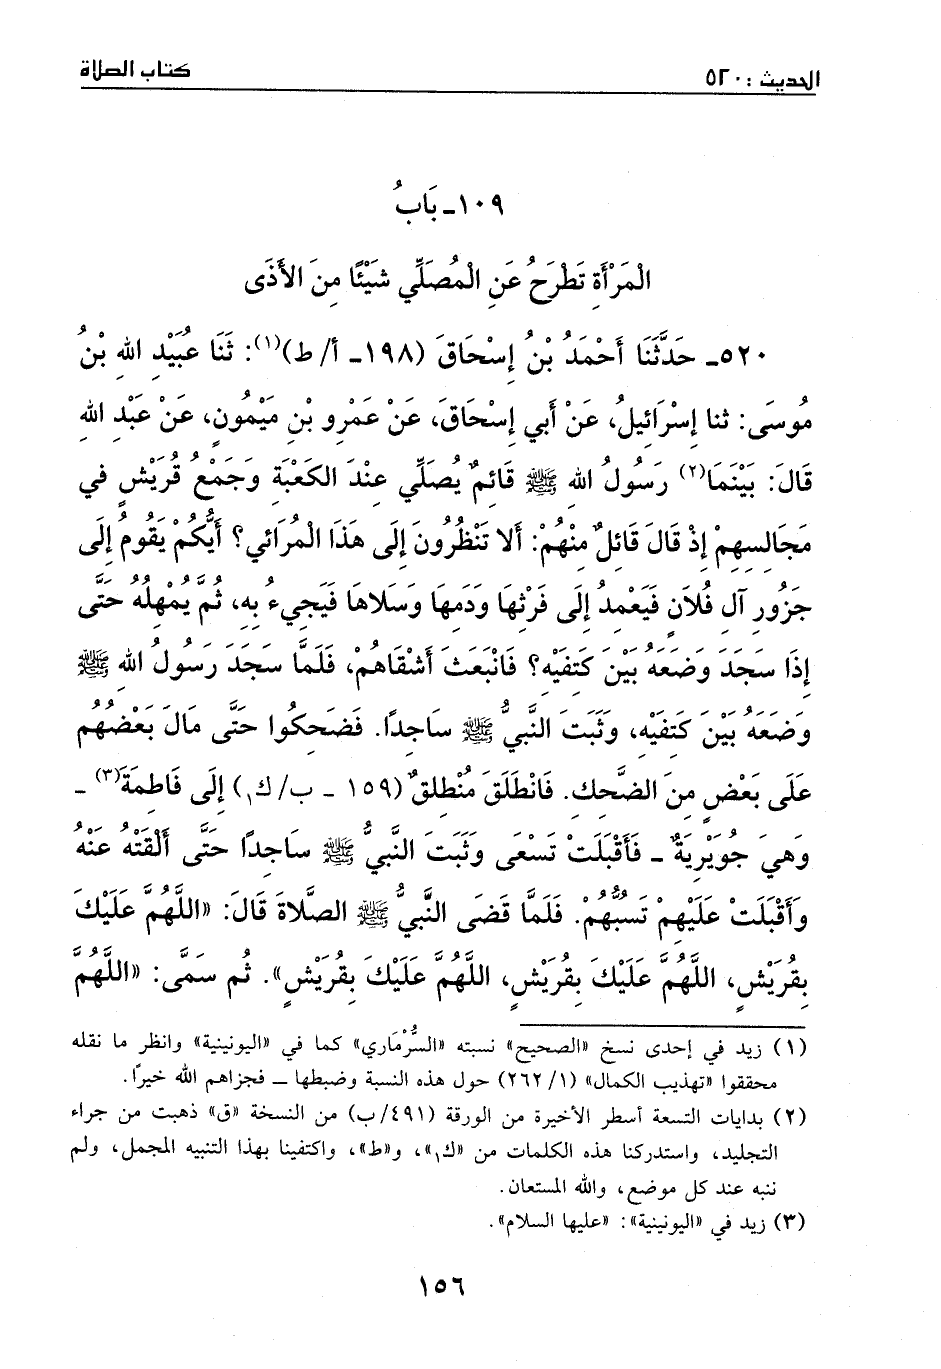 الحديث : ٥٢٠
كتاب الصلاة
١٠٩ـ بَابُ
الْمَرْأَةِ تَطْرَحُ عَنِ الْمُصَلِّي شَيْئًا مِنَ الأَذَى
٥٢٠ـ حَدَّثَنَا أَحْمَدُ بْنُ إِسْحَاقَ (١٩٨- أ/ ط)(١): ثَنَا عُبَيْدِ اللهِ بْنُ
مُوسَى: ثنا إِسْرَائِيلُ، عَنْ أَبِي إِسْحَاقَ، عَنْ عَمْرِو بْنِ مَيْمُونٍ، عَنْ عَبْدِ اللهِ
قَالَ: بَيْنَمَا(٢) رَسُولُ اللهِ ﷺ قَائِمٌ يُصَلِّي عِنْدَ الكَعْبَةِ وَجَمْعُ قُرَيْشٍ فِي
مَجَالِسِهِمْ إِذْ قَالَ قَائِلٌ مِنْهُمْ: أَلا تَنْظُرُونَ إِلَى هَذَا الْمُرَائي؟ أَيُّكُمْ يَقُومُ إِلَى
جَزُورِ آلِ فُلاَنٍ فَيَعْمِدُ إِلَى فَرْثِهَا وَدَمِهَا وَسَلاهَا فَيَجِيءُ بِهِ، ثُمَّ يُمْهِلُهُ حَتَّى
إِذَا سَجَدَ وَضَعَهُ بَيْنَ كَتِفَيْهِ؟ فَانْبَعَثَ أَشْقَاهُمْ، فَلَمَّا سَجَدَ رَسُولُ اللهِ ﷺ
وَضَعَهُ بَيْنَ كَتِفَيْهِ، وَثَبَتَ النَّبِيُّ ﷺ سَاجِدًا. فَضَحِكُوا حَتَّى مَالَ بَعْضُهُم
عَلَى بَعْضٍ مِنَ الضَّحِكِ. فَانْطَلَقَ مُنْطَلِقٌ (١٥٩ - ب/ ك١) إِلَى فَاطِمَةَ(٣) -
وَهِيَ جُوَيْرِيَةٌ - فَأَقْبَلَتْ تَسْعَى وَثَبَتَ النَّبِيُّ ﷺ سَاجِدًا حَتَّى أَلْقَتْهُ عَنْهُ
وَأَقْبَلَتْ عَلَيْهِمْ تَسُبُّهُمْ. فَلَمَّا قَضَى النَّبِيُّ ﷺ الصَّلاَةَ قَالَ: «اللَّهُمَّ عَلَيْكَ
بِقُرَيْشٍ، اللَّهُمَّ عَلَيْكَ بِقُرَيْشٍ، اللَّهُمَّ عَلَيْكَ بِقُرَيْشٍ». ثُم سَمَّى: «اللَّهُمَّ
(١) زيد في إحدى نسخ «الصحيح» نسبته «السُّرْمَاري» كما في «اليونينية» وانظر ما نقله
محققوا «تهذيب الكمال» (١/ ٢٦٢) حول هذه النسبة وضبطها - فجزاهم الله خيرًا.
(٢) بدايات التسعة أسطر الأخيرة من الورقة (٤٩١/ ب) من النسخة «ق» ذهبت من جراء
التجليد، واستدركنا هذه الكلمات من «ك١»، و«ط»، واكتفينا بهذا التنبيه المجمل، ولم
ننبه عند كل موضع، والله المستعان.
(٣) زيد في «اليونينية»: «عليها السلام».
١٥٦